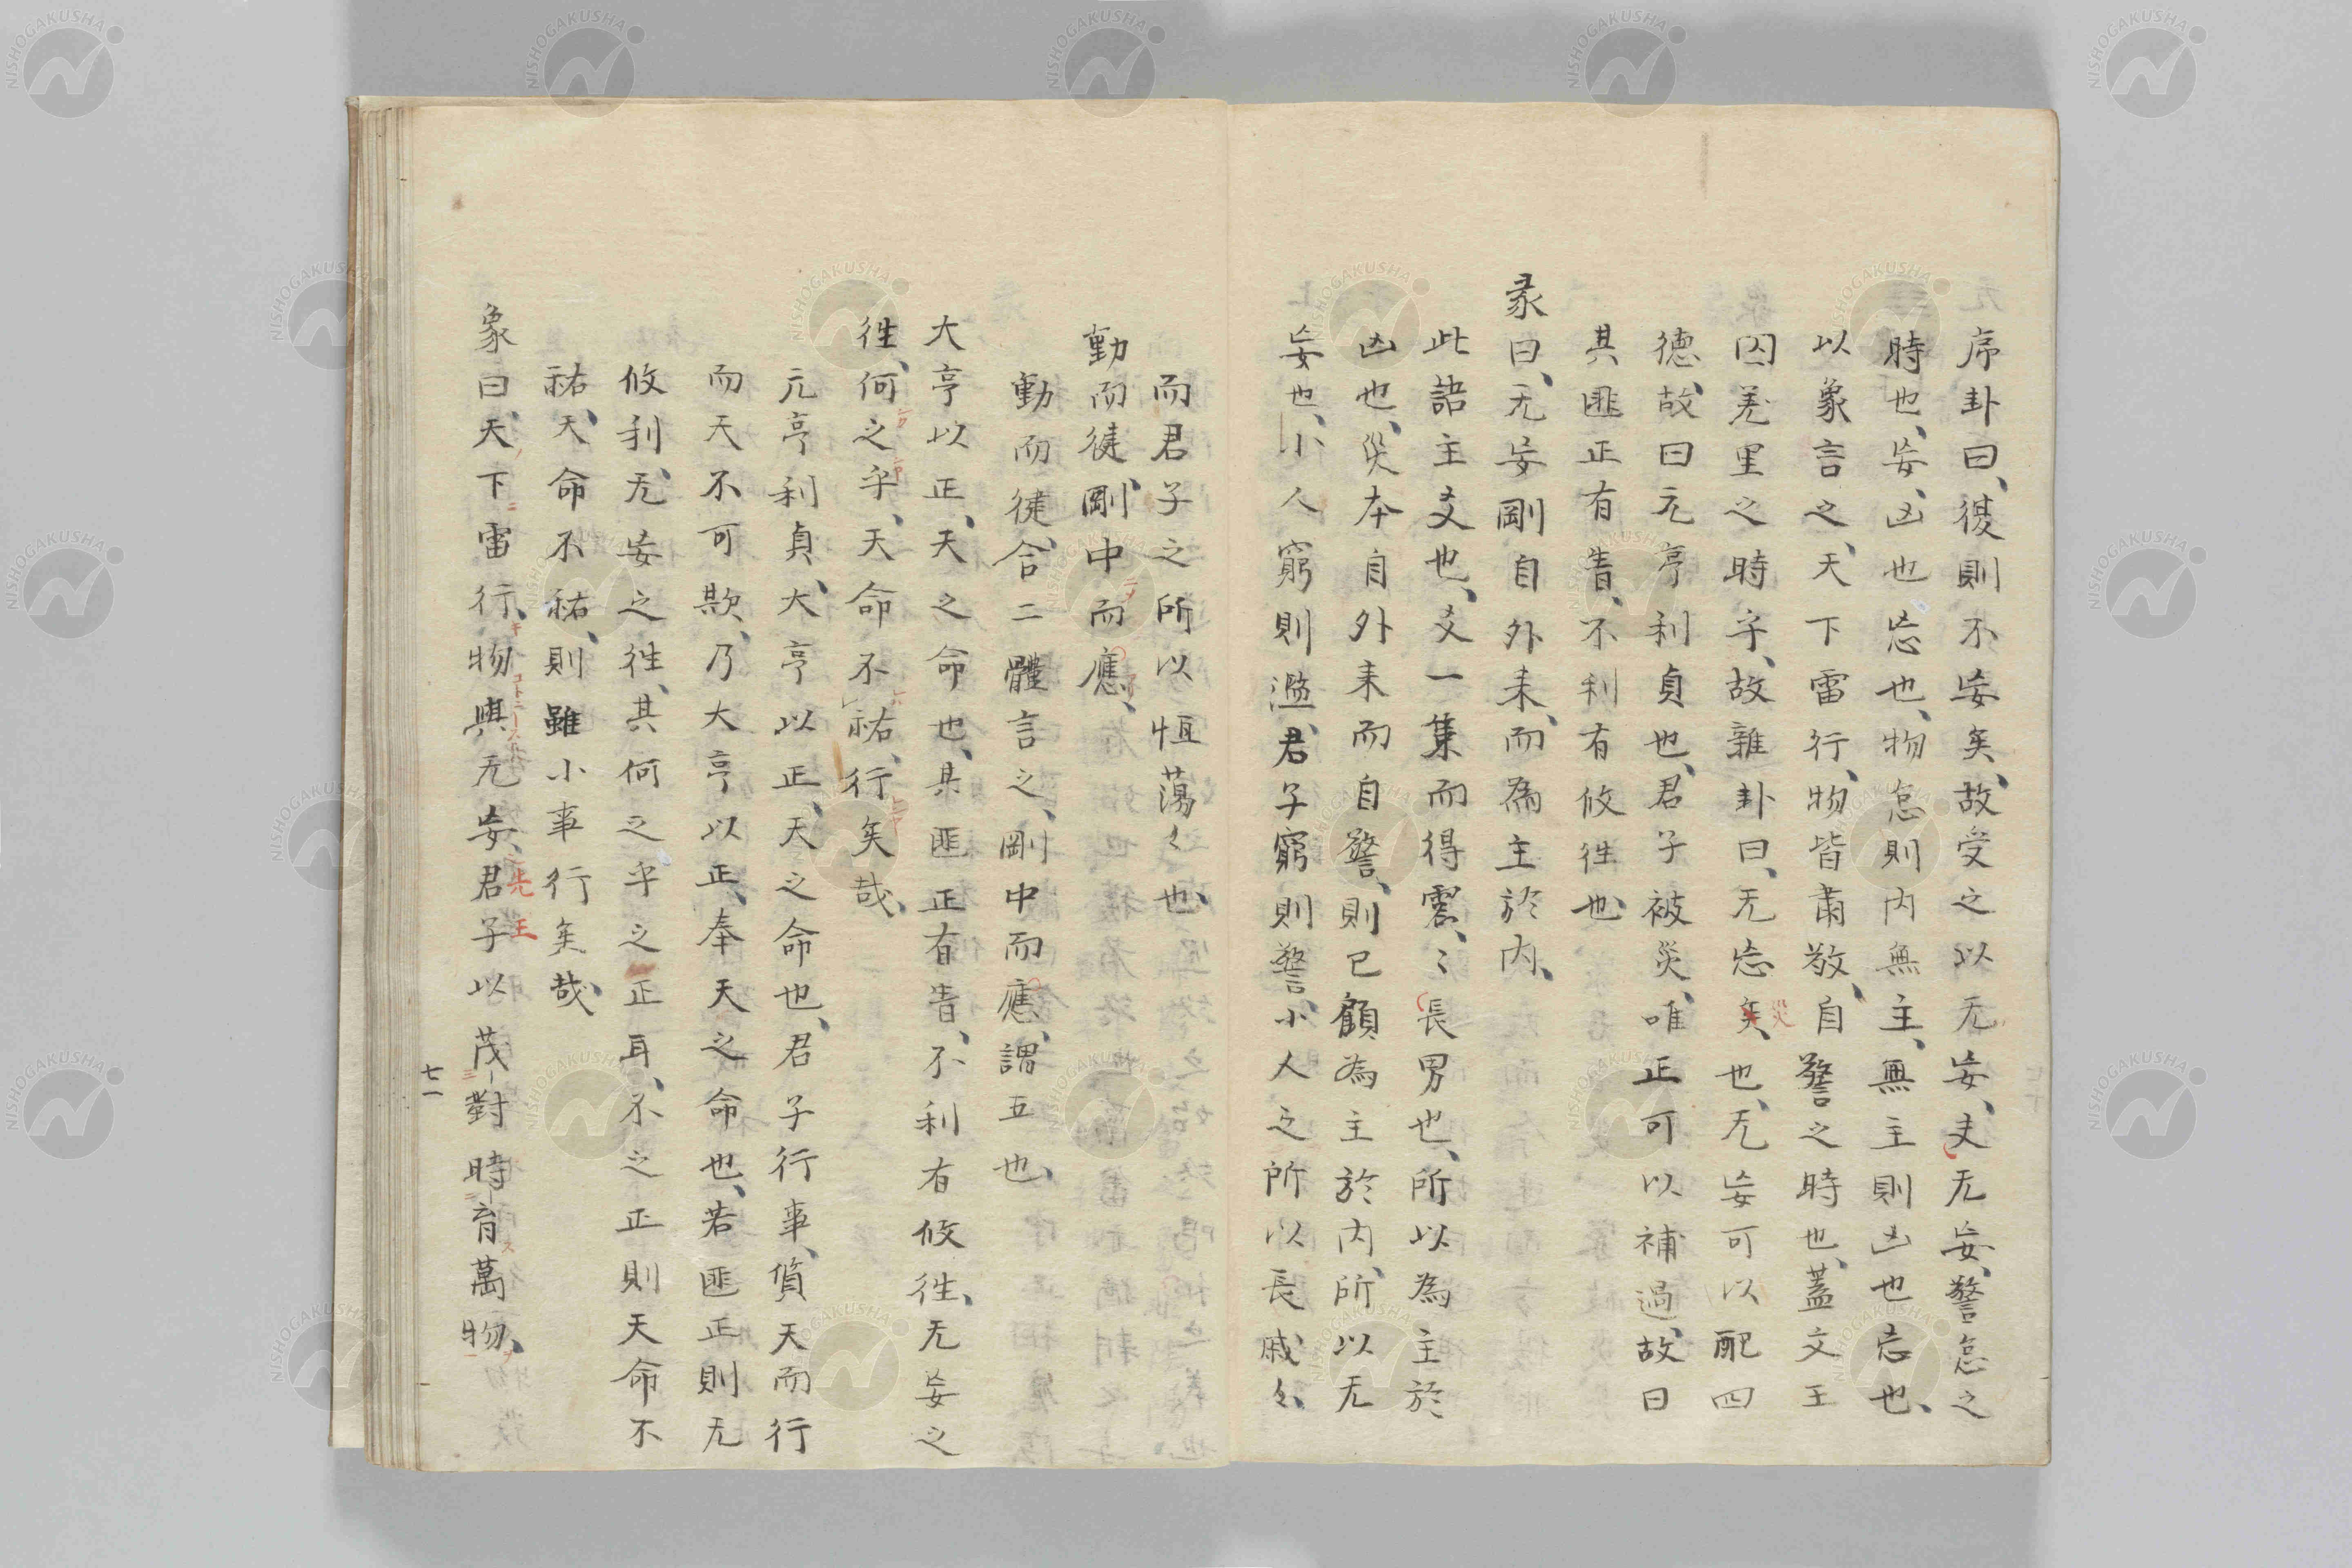 序卦曰、復則不妄矣、故受之以无妄、夫无妄、警怠之
時也、妄、凶也忘也、物怠則内無主、無主則凶也忘也、
以象言之、天下雷行、物皆肅敬、自警之時也、蓋文王
囚羑里之時乎、故雜卦曰、无忘矣、災也、无妄可以配四
德、故曰元亨利貞也、君子被災、唯正可以補過、故曰
其匪正有眚、不利有攸往也
彖曰、无妄剛自外来、而為主於内、
此語主爻也、爻一集而得震、〻長男也、所以為主於
凶也、災本自外来而自警、則已顧為主於内、所以无
妄也、小人窮則濫、君子窮則警、小人之所以長戚〻、
而君子之所以恒蕩〻也、
動而徤、剛中而應、
動而徤、合二體言之、剛中而應、謂五也、
大亨以正、天之命也、其匪正有眚、不利有攸往、无妄之
往、何之乎、天命不祐、行矣哉、
元亨利貞、大亨以正、天之命也、君子行事、傎天而行
而天不可欺、乃大亨以正、奉天之命也、若匪正則无
攸利、无妄之往、其何之乎之正耳、不之正則天命不
祐、天命不祐、則雖小事行矣哉、
象曰、天下雷行、物與无妄、先王君子以茂對時育萬物、
七一
NISHOGAKUSHA